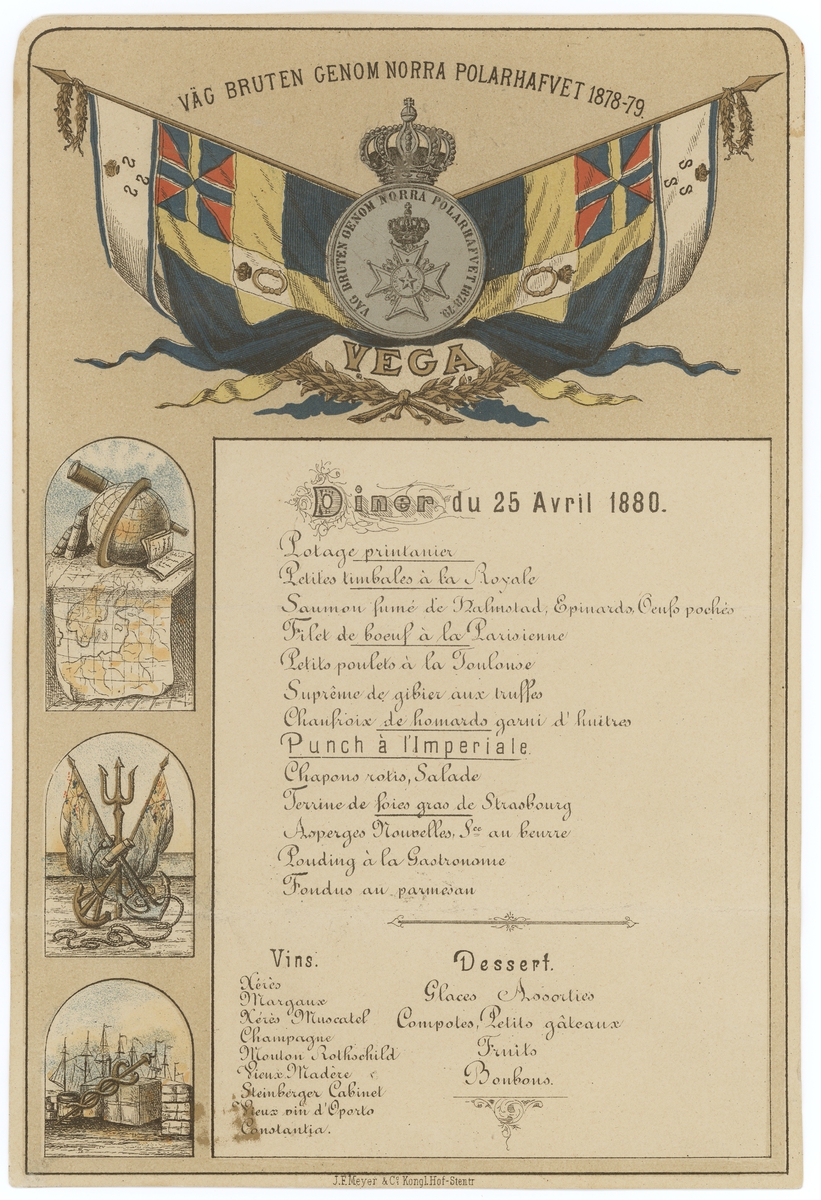 VÄG BRUTEN GENOM NORRA POLARHAFVET 1878-79.
VÄG BRUTEN GENOM NORRA POLARHAFVET 1878-79.
VEGA
Diner du 25 Avril 1880.
Potage printanier
Petites timbales à la Royale
Saumon fumé de Halmstad, Epinards, Oeufs pochés
Filet de boeuf à la Parisienne
Petits poulets à la Toulouse
Suprême de gibier aux truffes
Chaufroix de homards garni d'huitres
Punch à l'Imperiale.
Chapons rotis, Salade
Terrine de foies gras de Strasbourg
Asperges Nouvelles, Sce au beurre
Pouding à la Gastronome
Fondus au parmesan
Vins.
Xérès
Margaux
Xérès Muscatel
Champagne
Mouton Rothschild
Vieux Madère
Steinberger Cabinet
Vieux vin d'Oporto
Constantia.
Dessert.
Glaces Assorties
Compotes, Petits gâteaux
Fruits
Bonbons.
J.F. Meyer & Co Kongl. Hof-Stentr